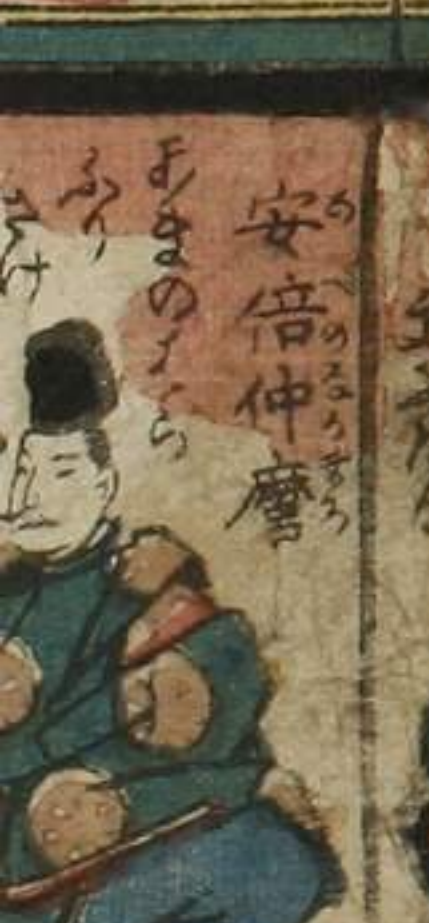 安倍仲麿
あべのなかまろ
あまのはら
ふり
さけ